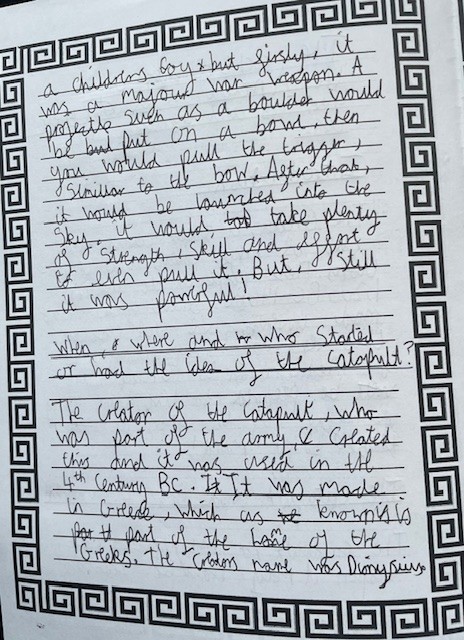 a childrens toy but firsly, it
was a majour war weapon. A
projectle such as a boulder would
be put on a bowl, then
you would pull the trigger,
similiar to the bow. After that,
it would be launched into the
sky. it would take plenty
of strength, skill and effort
to even pull it. But, still
it was powerful!
When, where and who started
or had the idea of the catapult?
The creator of the catapult, who
was part of the army, created
this and it was used in the
4th century BC. It was made
in Greece, which as known is
part of the home of the
Greeks. The creators name was Dionysius.